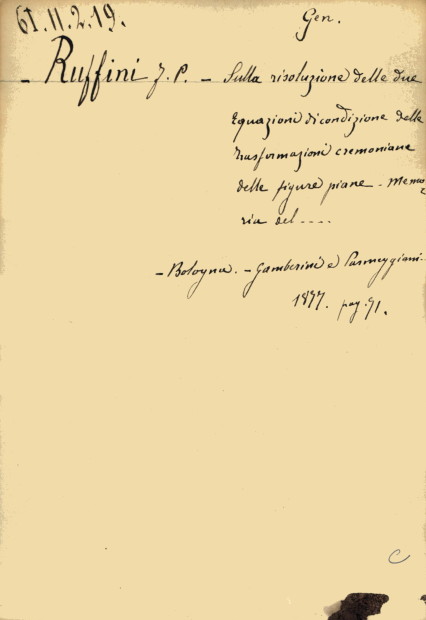 61.11.2.19.
Gen.
- Ruffini F. P. - Sulla risoluzione delle due
Equazioni di condizione delle
trasformazioni cremoniane
delle figure piane - Memo-
ria del ....
- Bologna. - Gamberini e Parmeggiani.
1877. pag. 91.
C